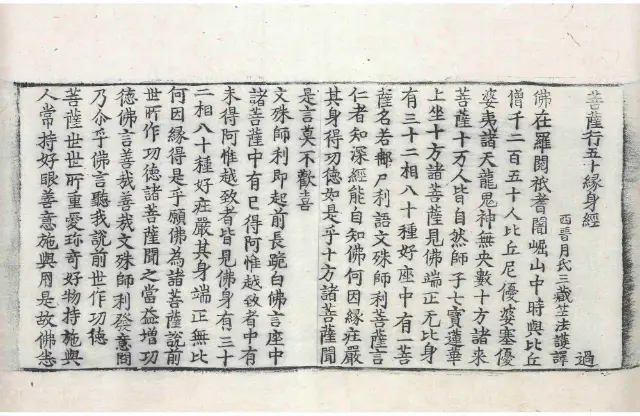 菩薩行五十緣身經
西晋月氏三藏竺法護譯 過
佛在羅閱祇耆闍崛山中時與比丘
僧千二百五十人比丘尼優婆塞優
婆夷諸天龍鬼神無央數十方諸來
菩薩十万人皆自然師子七寶蓮華
上坐十方諸菩薩見佛端正无比身
有三十二相八十種好座中有一菩
薩名若鄰尸利語文殊師利菩薩言
仁者知深經能自知佛何因緣莊嚴
其身得功德如是乎十方諸菩薩聞
是言莫不歡喜
文殊師利即起前長跪白佛言座中
諸菩薩中有已得阿惟越致者中有
未得阿惟越致者皆見佛身有三十
二相八十種好莊嚴其身端正無比
何因緣得是乎願佛為諸菩薩說前
世所作功德諸菩薩聞之當益增功
德佛言善哉善哉文殊師利發意問
乃尒乎佛言聽我說前世作功德
菩薩世世所重愛珎奇好物持施與
人常持好眼善意施與用是故佛悉